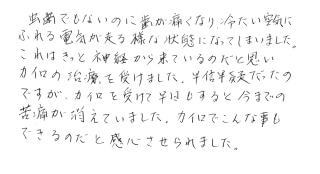 虫歯でもないのに歯が痛くなり冷たい空気に
ふれると電気が走る様な状態になってしまいました。
これはきっと神経から来ているのだと思い
カイロの治療を受けました。半信半疑だったの
ですが、カイロを受けて半日もすると今までの
苦痛が消えていました。カイロでこんな事も
できるのだと感心させられました。